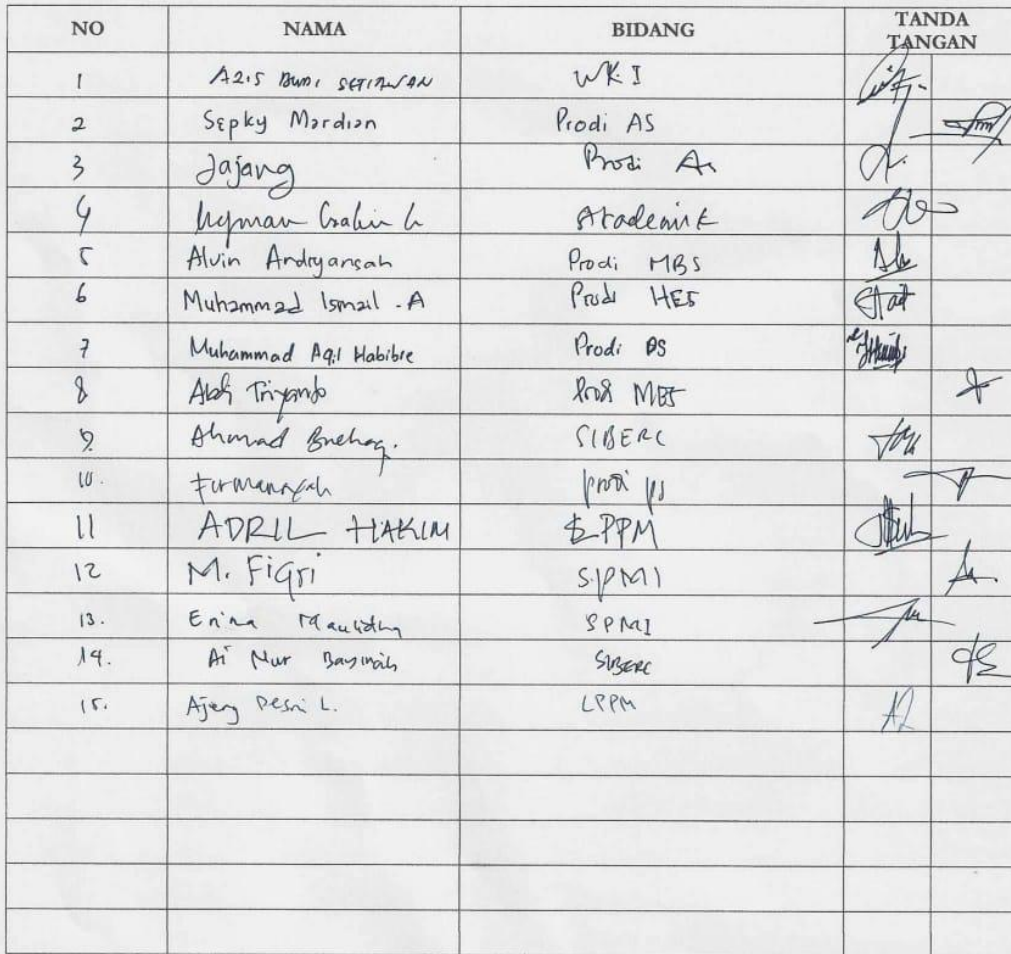 NO NAMA BIDANG TANDA TANGAN
1 AZIS BUDI SETIAWAN WK I
2 Sepky Mardian Prodi AS
3 Jajang Prodi As
4 Akademik
5 Alvin Andryansah Prodi MBS
6 Muhammad Ismail .A Prodi HES
7 Muhammad Aqil Habibie Prodi PS
8 Abdi Triyanto Prodi MBS
9. Ahmad SIBERC
10. Firmansyah prodi ps
11 ADRIL HAKIM LPPM
12 M. Fiqri SPMI
13. Erina Maulidha SPMI
14. Ai Nur Bayinah SIBERC
15. Ajeng Desni L. LPPM